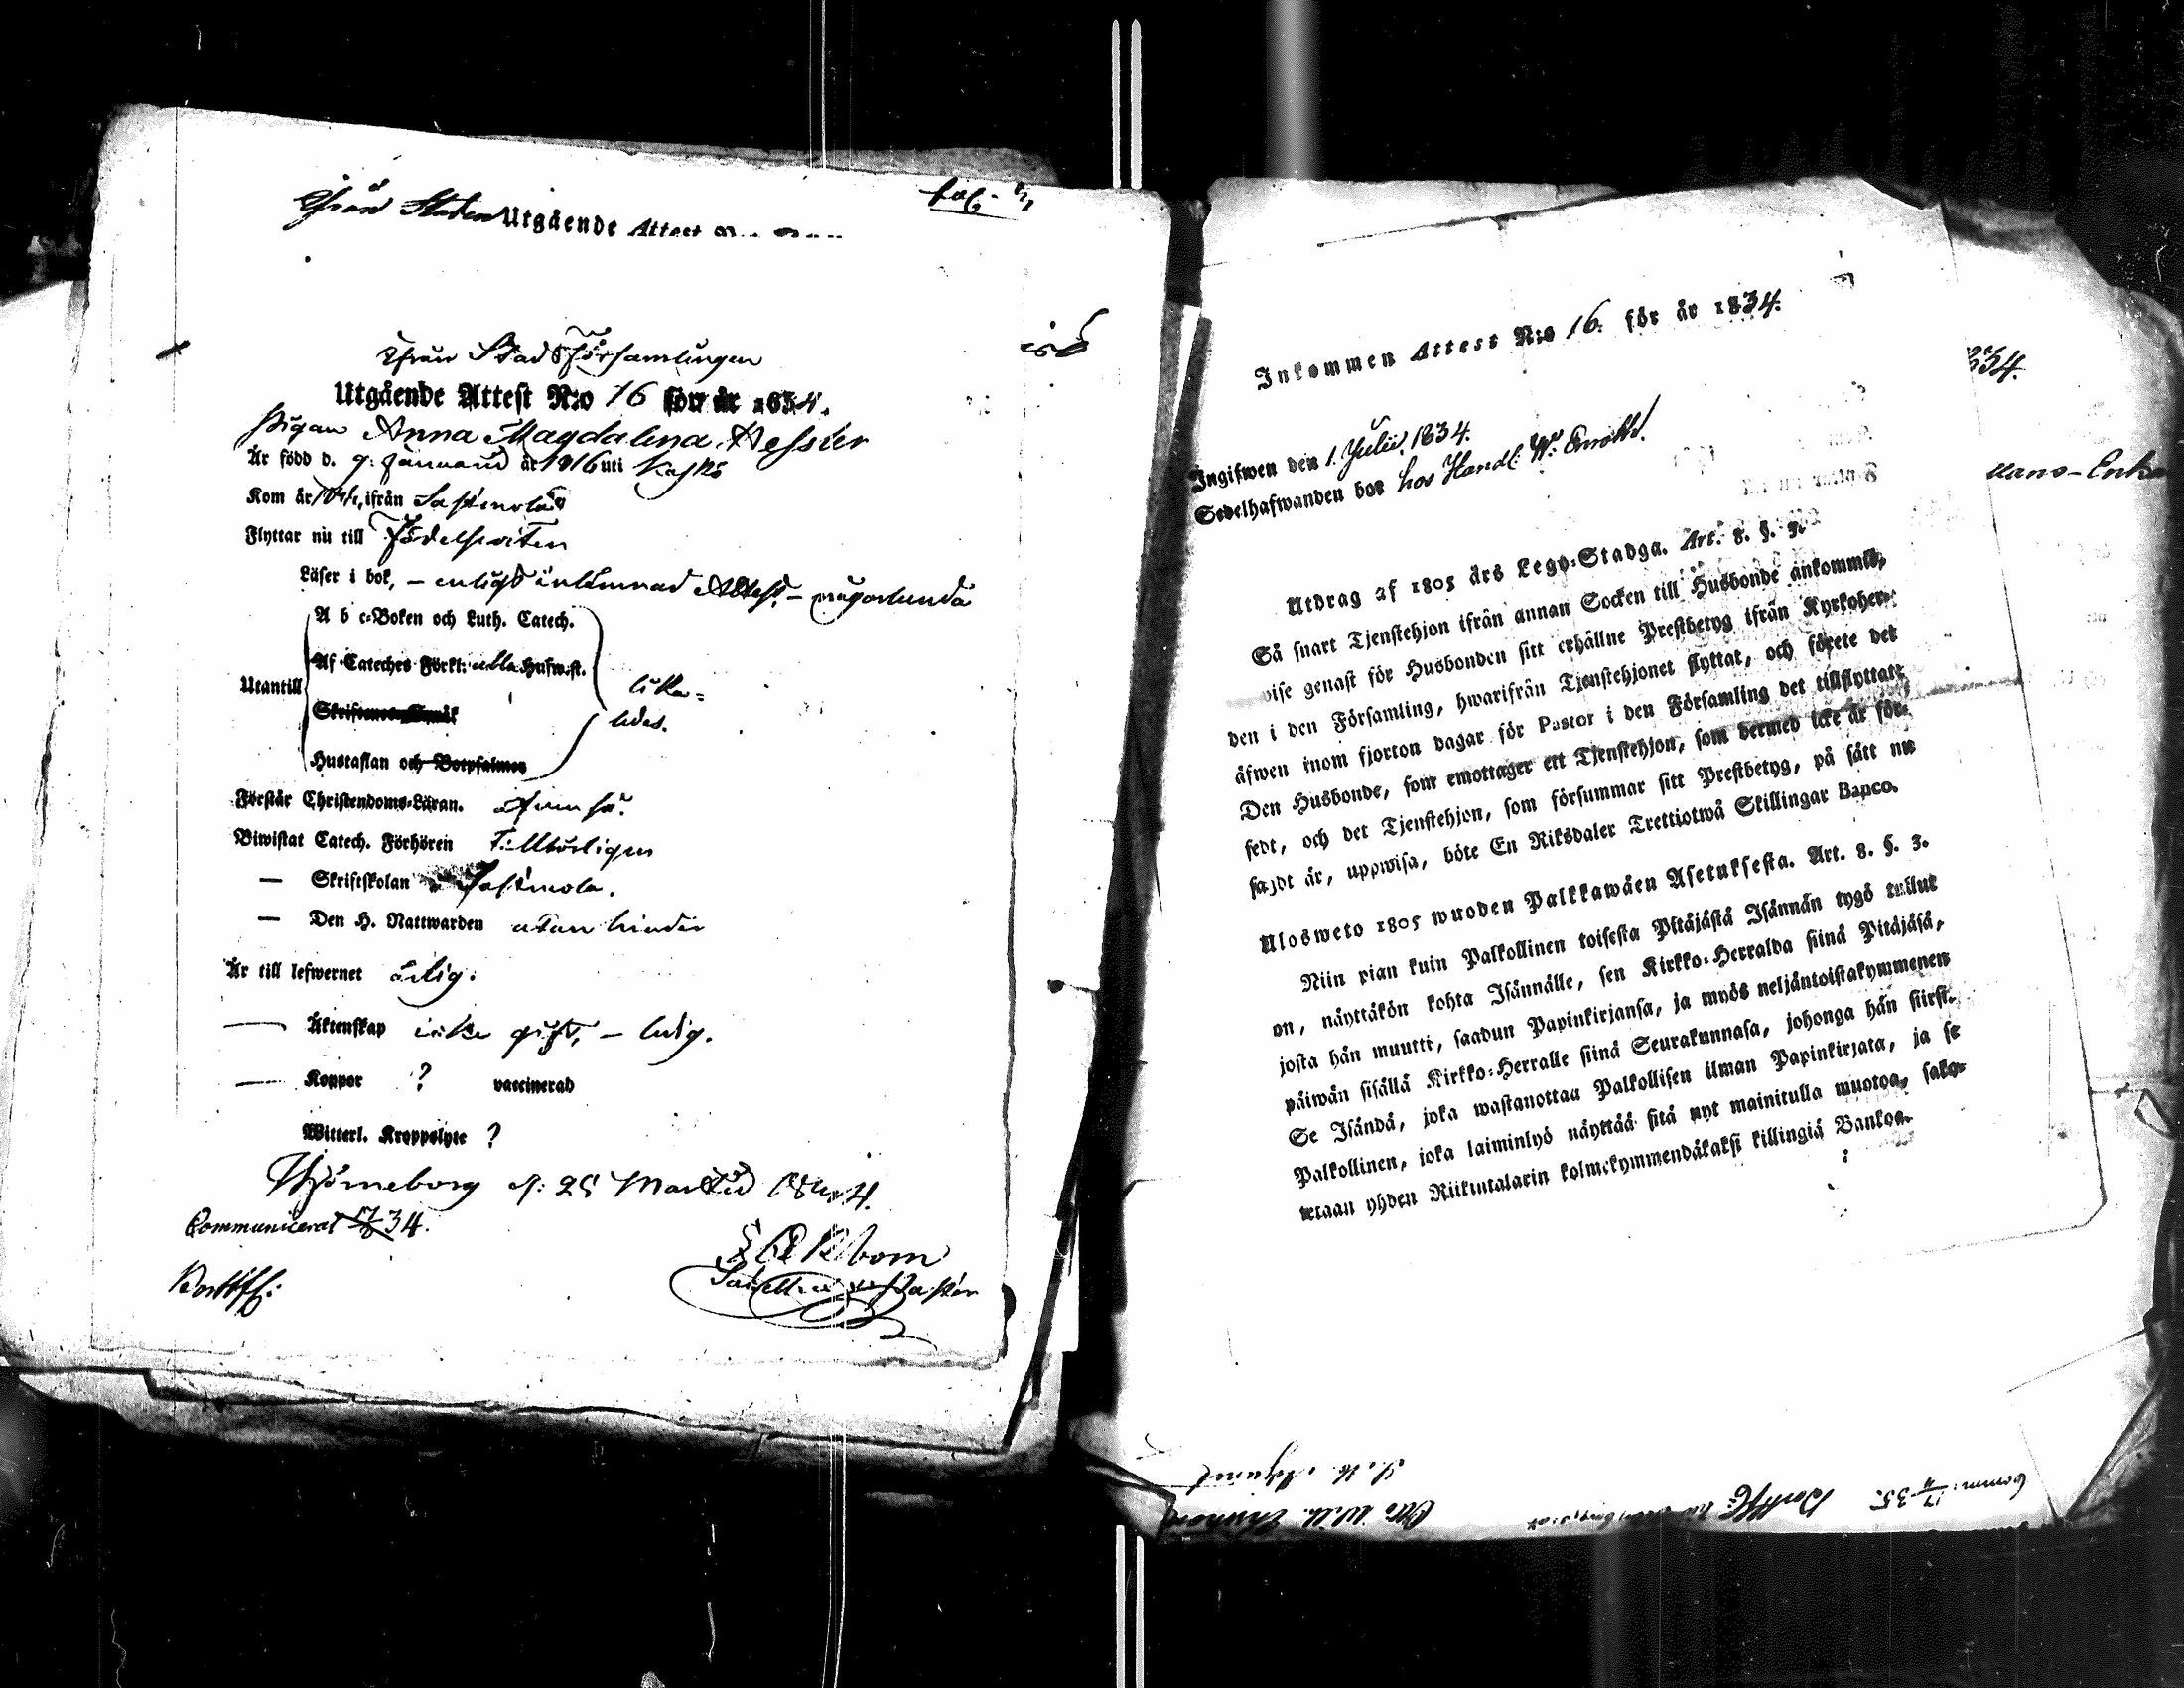 ifrån Staden Utgående Attest
fol.
ifrån Stads Församlingen
Utgående Attest N:o 16 för år 1834.
Pigan Anna Magdalena Hessler
Är född d. 9: Januarii år 1816 uti Kaskö
Kom år ifrån Sastmola
Flyttar nu till Födelseorten
Läser i bok, – enligt inlämnad Attest, – någorlunda
Utantill
A b c-Boken och Luth. Catech.
Af Cateches Förkl: alla Hufw.st.
Hustaflan och Botpsalmer
lika-
ledes.
Förstår Christendoms-Läran.
Biwistat Catech. Förhören
— Skriftskolan Sastmola.
— Den H. Nattwarden utan hinder
Är till lefwernet ärlig.
— Äktenskap icke gift, – ledig.
— Koppor ? vaccinerad
Witterl. Kroppslyte ?
Björneborg d: 25 Martii 1834.
Communicerat 34.
Inkommen Attest N:o 16. för år 1834.
Ingifwen den 1 Julii 1834.
Sedelhafwanden bor hos Handl: W: Enroth.
Utdrag af 1805 års Lego-Stadga. Art. 8. §. 3.
Så snart Tjenstehjon ifrån annan Socken till Husbonde ankommit,
wise genast för Husbonden sitt erhållne Prestbetyg ifrån Kyrkoher-
den i den Församling, hwarifrån Tjenstehjonet flyttat, och förete det
äfwen inom fjorton dagar för Pastor i den Församling det tillflyttat.
Den Husbonde, som emottager ett Tjenstehjon, som dermed icke är för-
sedt, och det Tjenstehjon, som försummar sitt Prestbetyg, på sått nu
sagdt är, uppwisa, böte En Riksdaler Trettiotwå Skillingar Banco.
Ulosweto 1805 wuoden Palkkawäen Asetuksesta. Art. 8. §. 3.
Niin pian kuin Palkollinen toisesta Pitäjästä Isännän tygö tullut
on, näyttäkön kohta Isännälle, sen Kirkko-Herralda siinä Pitäjäsä,
josta hän muutti, saadun Papinkirjansa, ja myös neljäntoistakymmenen
päiwän sisällä Kirkko-Herralle siinä Seurakunnasa, johonga hän siirst.
Se Isändä, joka wastanottaa Palkollisen ilman Papinkirjata, ja se
Palkollinen, joka laiminlyö näyttää sitä nyt mainitulla muotoa, sako-
tetaan yhden Riikintalarin kolmekymmendäkaksi killingiä Bankoa.
334.
Comm: 35.